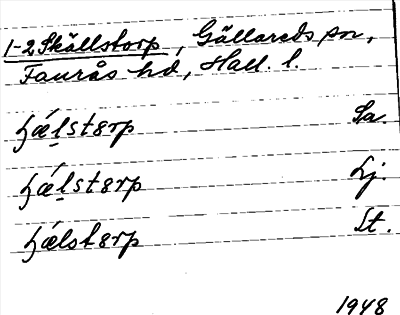 1-2 Skällstorp, Gällareds sn,
Faurås hd, Hall. l.
ɧǽl̠stərp Sa.
ɧǽl̠stərp Lj.
ɧǽlstərp St.
1948